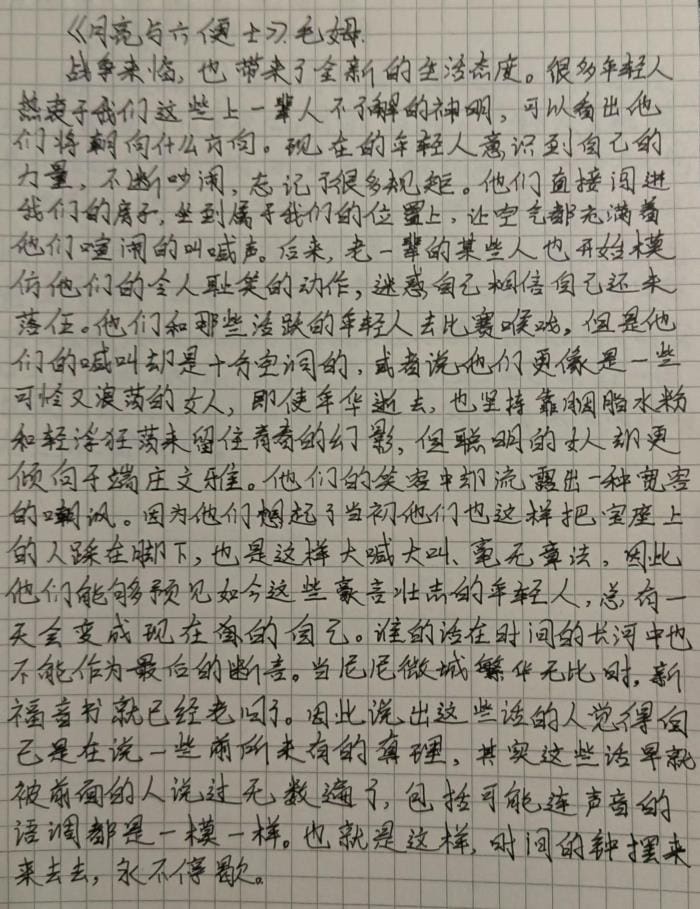 《月亮与六便士》毛姆.
战争来临，也带来了全新的生活态度。很多年轻人
热衷于我们这些上一辈人不了解的神明，可以看出他
们将朝向什么方向。现在的年轻人意识到自己的
力量，不断吵闹，忘记了很多规矩。他们直接闯进
我们的房子，坐到属于我们的位置上，让空气都充满着
他们喧闹的叫喊声。后来，老一辈的某些人也开始模
仿他们的令人耻笑的动作，迷惑自己相信自己还未
落伍。他们和那些活跃的年轻人去比赛喉咙，但是他
们的喊叫却是十分空洞的，或者说他们更像是一些
可怪又浪荡的女人，即使年华逝去，也坚持靠胭脂水粉
和轻浮狂荡来留住青春的幻影，但聪明的女人却更
倾向于端庄文雅。他们的笑容中却流露出一种宽容
的嘲讽。因为他们想起了当初他们也这样把宝座上
的人踩在脚下，也是这样大喊大叫、毫无章法，因此
他们能够预见如今这些豪言壮志的年轻人，总有一
天会变成现在的自己。谁的话在时间的长河中也
不能作为最后的断言。当尼尼微城繁华无比时，新
福音书就已经老旧了。因此说出这些话的人觉得自
己是在说一些前所未有的真理，其实这些话早就
被前面的人说过无数遍了，包括可能连声音的
语调都是一模一样。也就是这样，时间的钟摆来
来去去，永不停歇。